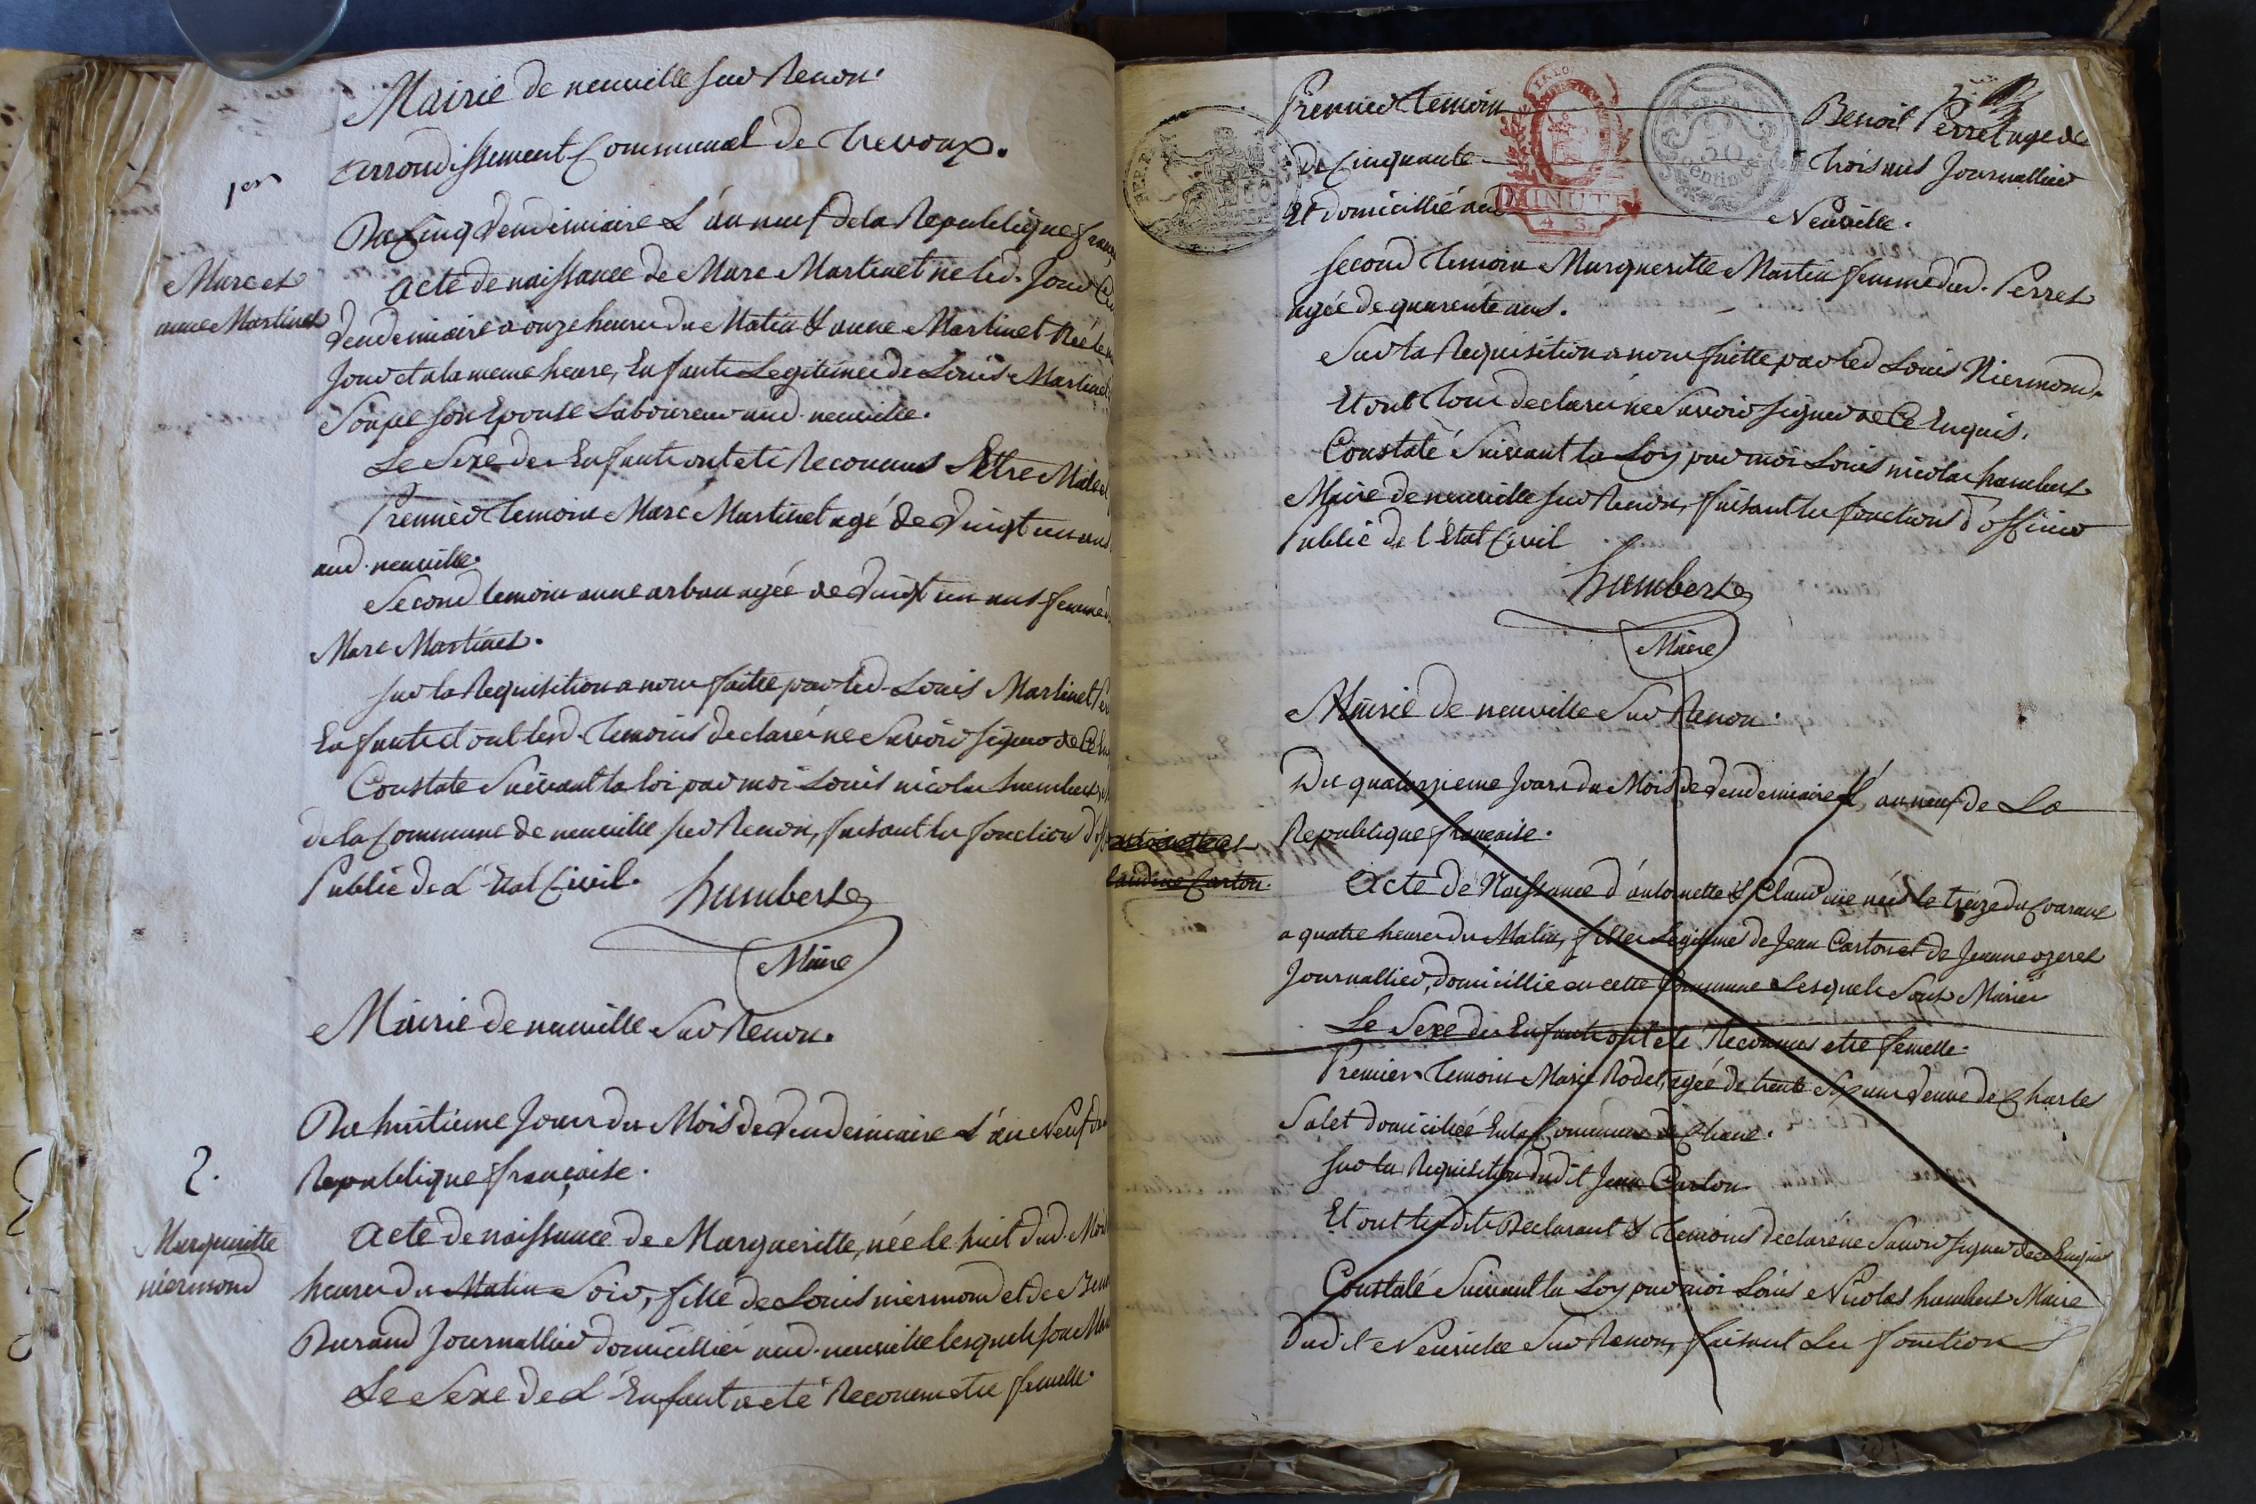 Mairie de neuville sur Renon.
arrondissement Communal de Trevoux.
1er
Du Cinq Vendemiaire L'an neuf de la Republique
Marc et
anne Martinet
Acte de naissance de Marc Martinet né led. Jour
Vendemiaire a onze heures du Matin & anne Martinet Née le
Jour et a la meme heure, Enfants Legitimes de Louis Martinet
Soupe son Epouse Laboureur aud. neuville.
Le Sexe des Enfants ont été Reconnus Etre Male
Premier Temoin Marc Martinet agé de Vingt un ans
aud. neuville.
Second temoin anne arban agée de Vingt un ans femme
Marc Martinet.
sur la Requisition a nous faitte par led. Louis Martinet
Enfants et ont lesd. Temoins declaré ne Savoir signer de Ce
Constaté Suivant la loi par moi Louis nicolas humbert,
de la Commune de neuville sur Renon, faisant les fonction
Public de L'Etat Civil.
humbert
Maire
Mairie de neuville Sur Renon.
Du huitieme Jour du Mois de Vendemiaire L'an Neuf
Republique française.
2.
Margueritte
niermond
Acte de naissance de Margueritte, née le huit dud. Mois
heures du Matin Soir, fille de Louis niermond et de
Durand Journallier domicillié aud. neuville lesquels sont
Le Sexe de L'Enfant a eté Reconnu etre femelle.
Premier Temoin Benoit Perret agé de
de Cinquante Trois ans Journallier
Et domicillié aud. Neuville.
REP. FRA.
50
Centimes
MINUTE
second Temoin Margueritte Martin femme dud. Perret
agée de quarente ans.
Sur la Requisition a nous faitte par led Louis Niermond.
Et ont Tous declaré ne Savoir signer de Ce Enquis.
Constaté Suivant la Loy par moi Louis nicolas humbert
Maire de neuville sur Renon, faisant les fonctions d'officier
Public de l'Etat Civil
humbert
Maire
Mairie de neuville Sur Renon.
Du quatorzieme Jour du Mois de Vendemiaire L'an neuf de La
Republique française.
antoinette et
Claudine Carton.
Acte de Naissance d'antoinette & Claudine nées le treize du Courant
a quatre heures du Matin, filles Legitime de Jean Carton et de Jeanne ozeret
Journallier, domicillié en cette Commune Lesquels Sont Mariés
Le Sexe des Enfants ont été Reconnus etre femelle.
Premier Temoin Marie Rodet, agée de trente Six ans Veuve de Charle
Salet domiciliée En la Commune de Chane.
sur la Requisition dudit Jean Carton
Et ont lesdits Declarant & Temoins declaré ne Savoir signer de ce Enquis
Constaté Suivant la Loy par moi Louis Nicolas humbert Maire
dudit Neuville Sur Renon, faisant Les fonction